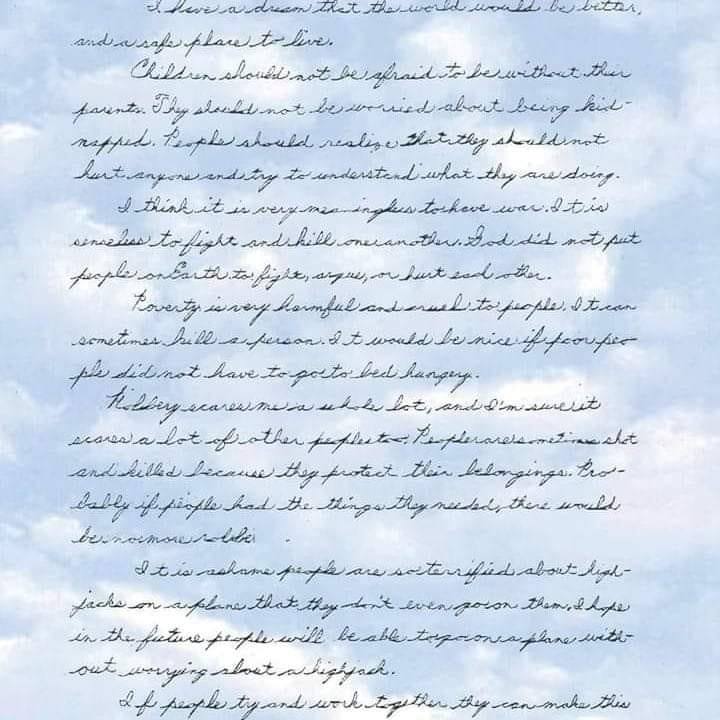 I have a dream that the world would be better,
and a safe place to live.
Children should not be afraid to be without their
parents. They should not be worried about being kid-
napped. People should realize that they should not
hurt anyone and try to understand what they are doing.
I think it is very meaningless to have war. It is
senseless to fight and kill one another. God did not put
people on Earth to fight, argue, or hurt each other.
Poverty is very harmful and cruel to people. It can
sometimes kill a person. It would be nice if poor peo-
ple did not have to go to bed hungery.
Robbery scares me a whole lot, and I'm sure it
scares a lot of other peoples too. People are sometimes shot
and killed because they protect their belongings. Pro-
bably if people had the things they needed, there would
be no more
It is ashame people are so terrified about high-
jacks on a plane that they don't even go on them. I hope
in the future people will be able to go on a plane with-
out worrying about a highjack.
If people try and work together they can make this